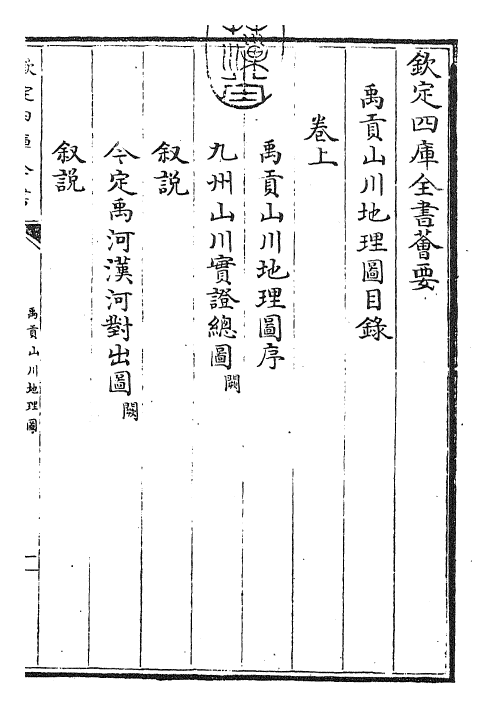 欽定四庫全書薈要
禹貢山川地理圖目錄
卷上
禹貢山川地理圖序
九州山川實證總圖闕
叙說
今定禹河漢河對出圖闕
叙說
欽定四庫全書
禹貢山川地理圖
一